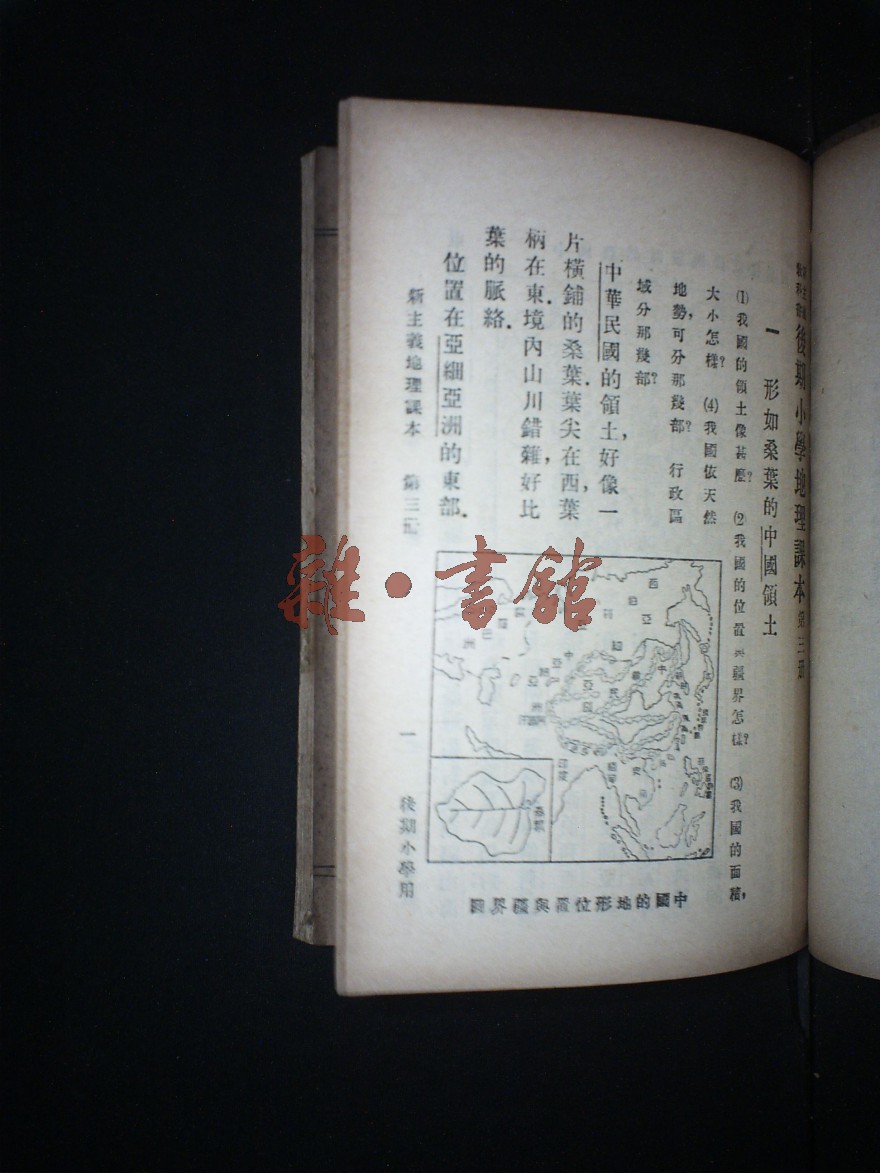 後期小學地理課本 第三册
一 形如桑葉的中國領土
(1)我國的領土像甚麽? (2)我國的位置與疆界怎樣? (3)我國的面積,
大小怎樣? (4)我國依天然
地勢,可分那幾部? 行政區
域分那幾部?
中華民國的領土,好像一
片橫鋪的桑葉.葉尖在西,葉
柄在東.境內山川錯雜,好比
葉的脈絡.
位置在亞細亞洲的東部.
新主義地理課本 第三册
一
後期小學用
西伯利亞
中華民國
中亞細亞
印度
緬甸
安南
桑葉
中國的地形位置與疆界圖
雜·書館